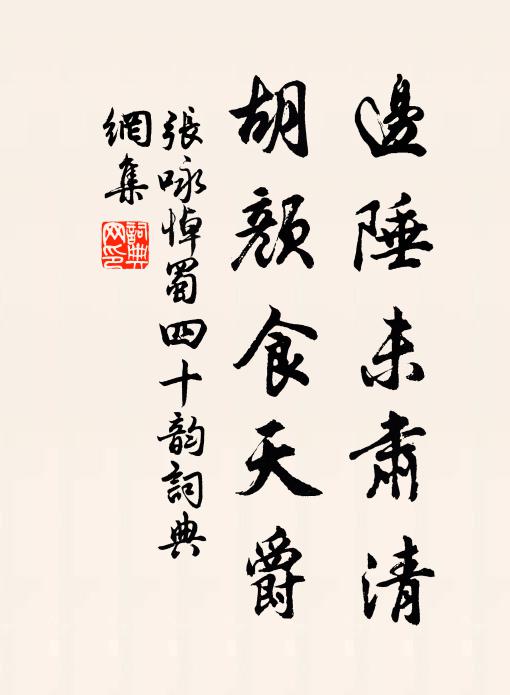 邊陲未肅清
胡顏食天爵
張咏悼蜀四十韵詞典
網集
詞典
网印